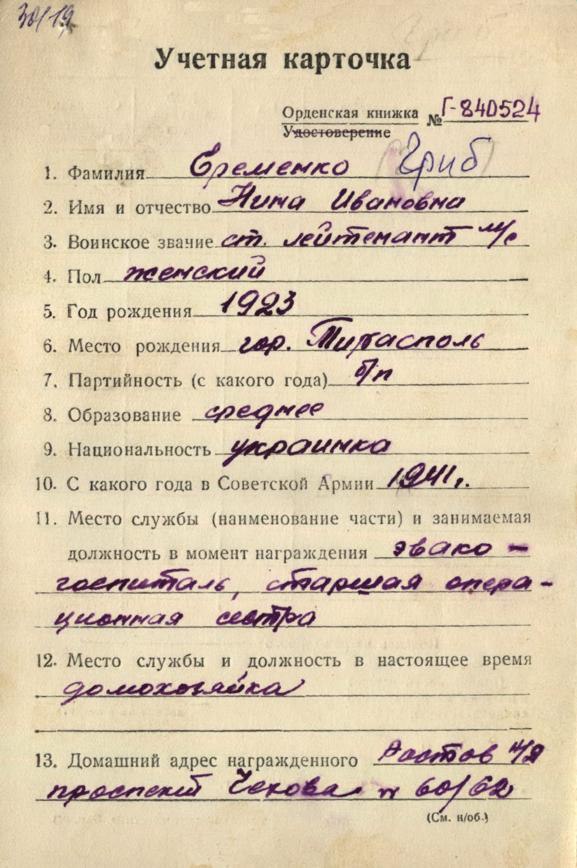 30/19
Учетная карточка
Орденская книжка № Г-840524
Удостоверение
1. Фамилия Еременко (Гриб)
2. Имя и отчество Нина Ивановна
3. Воинское звание ст. лейтенант м/с
4. Пол женский
5. Год рождения 1923
6. Место рождения гор. Тирасполь
7. Партийность (с какого года) б/п
8. Образование среднее
9. Национальность украинка
10. С какого года в Советской Армии 1941 г.
11. Место службы (наименование части) и занимаемая
должность в момент награждения эвако-
госпиталь, старшая опера-
ционная сестра
12. Место службы и должность в настоящее время
домохозяйка
13. Домашний адрес награжденного Ростов н/Д
проспект Чехова № 60/62
(См. н/об.)